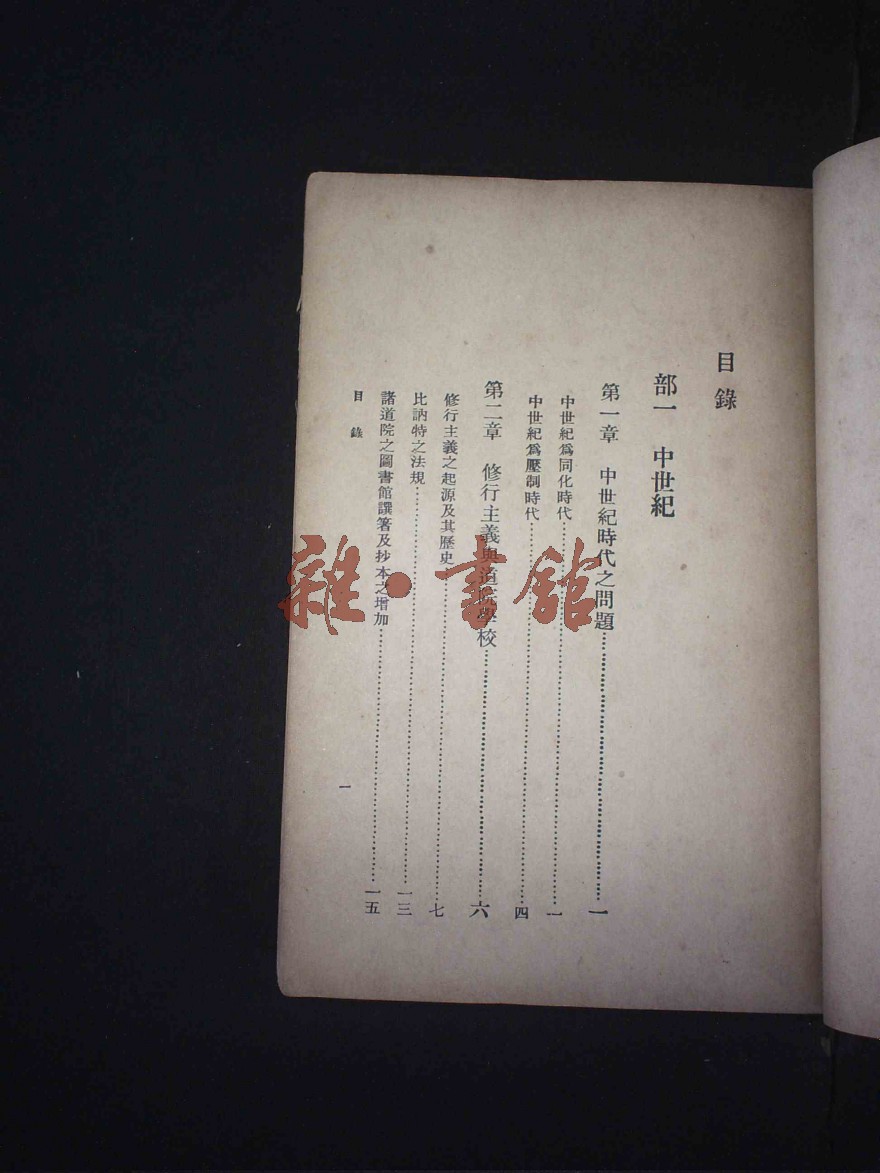 目錄
部一 中世紀
第一章 中世紀時代之問題……一
中世紀爲同化時代……一
中世紀爲壓制時代……四
第二章 修行主義與道院學校……六
修行主義之起源及其歷史……七
比訥特之法規……一三
諸道院之圖書館譔箸及抄本之增加……一五
目錄
一
雜·書館